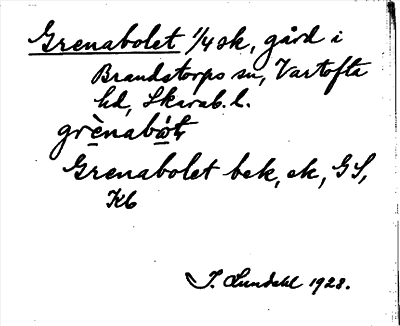 Grenabolet 1/4 sk, gård i
Brandstorps sn, Vartofta
hd, Skarab. l.
Grenabolet bek, ek, GS,
Kb
I. Lundahl 1928.